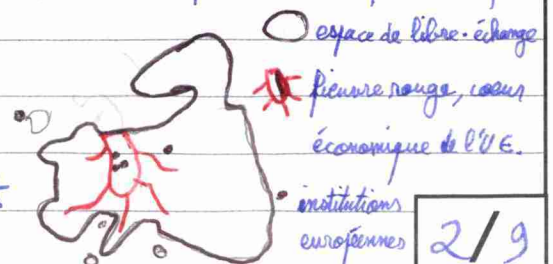 espace de libre-échange
pieuvre rouge, coeur
économique de l'UE.
institutions
européennes
2/9